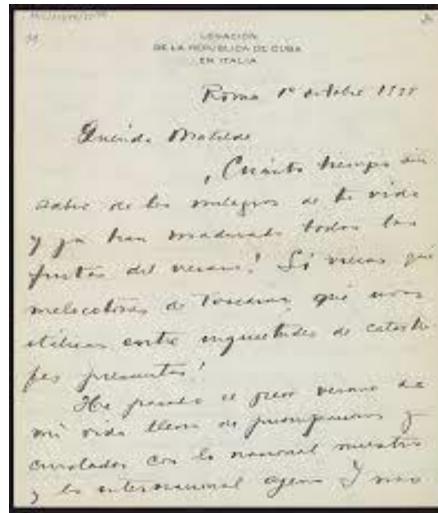 LEGACIÓN
DE LA REPÚBLICA DE CUBA
EN ITALIA
Roma 1º octubre 19
Querida Matilde
¡Cuánto tiempo sin
saber de los milagros de tu vida
y ya han madurado todas las
frutas del verano! Si vieras qué
melocotones de Toscana qué uvas
entre inquietudes de catástro
fes presentes!
He pasado el peor verano de
mi vida lleno de preocupaciones y
con lo nacional nuestro
y lo internacional ajeno Y mas